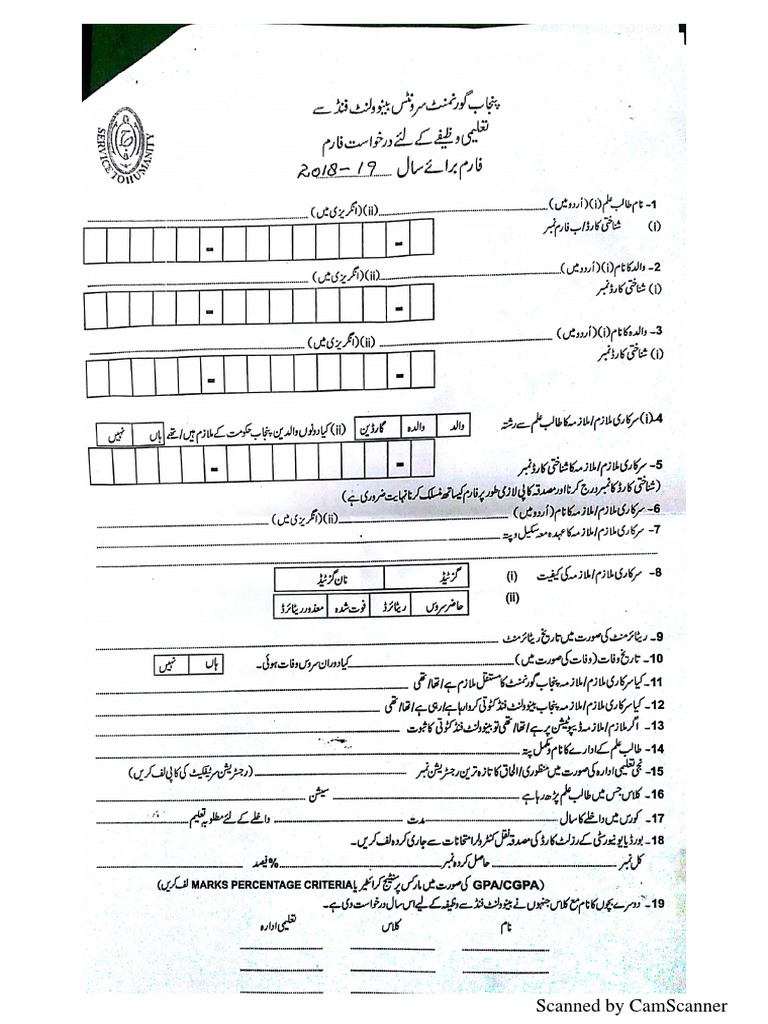 پنجاب گورنمنٹ سرونٹس بینوولنٹ فنڈ سے
تعلیمی وظیفے کے لئے درخواست فارم
فارم برائے سال 2018-19
SERVICE TO HUMANITY
1- نام طالب علم (i) (اُردو میں) (ii) (انگریزی میں)
(i) شناختی کارڈ/ب فارم نمبر
2- والد کا نام (i) (اُردو میں) (ii) (انگریزی میں)
(i) شناختی کارڈ نمبر
3- والدہ کا نام (i) (اُردو میں) (ii) (انگریزی میں)
(i) شناختی کارڈ نمبر
4- (i) سرکاری ملازم/ملازمہ کا طالب علم سے رشتہ والد والدہ گارڈین (ii) کیا دونوں والدین پنجاب حکومت کے ملازم ہیں/تھے ہاں نہیں
5- سرکاری ملازم/ملازمہ کا شناختی کارڈ نمبر
(شناختی کارڈ کا نمبر درج کرنا اور مصدقہ کاپی لازمی طور پر فارم کیساتھ منسلک کرنا نہایت ضروری ہے)
6- سرکاری ملازم/ملازمہ کا نام (اُردو میں) (ii) (انگریزی میں)
7- سرکاری ملازم/ملازمہ کا عہدہ معہ سکیل و پتہ
8- سرکاری ملازم/ملازمہ کی کیفیت (i) گزٹیڈ نان گزٹیڈ
(ii) حاضر سروس ریٹائرڈ فوت شدہ معذور ریٹائرڈ
9- ریٹائرمنٹ کی صورت میں تاریخ ریٹائرمنٹ
10- تاریخ وفات (وفات کی صورت میں) کیا دوران سروس وفات ہوئی۔ ہاں نہیں
11- کیا سرکاری ملازم/ملازمہ پنجاب گورنمنٹ کا مستقل ملازم ہے/تھا/تھی
12- کیا سرکاری ملازم/ملازمہ پنجاب بینوولنٹ فنڈ کٹوتی کروا رہا ہے/رہی ہے/تھا/تھی
13- اگر ملازم/ملازمہ ڈیپوٹیشن پر ہے/تھا/تھی تو بینوولنٹ فنڈ کٹوتی کا ثبوت
14- طالب علم کے ادارے کا نام و مکمل پتہ
15- نجی تعلیمی ادارہ کی صورت میں منظوری/الحاق کا تازہ ترین رجسٹریشن نمبر (رجسٹریشن سرٹیفکیٹ کی کاپی لف کریں)
16- کلاس جس میں طالب علم پڑھ رہا ہے سیشن
17- کورس میں داخلے کا سال مدت داخلے کے لئے مطلوبہ تعلیم
18- بورڈ یا یونیورسٹی کے رزلٹ کارڈ کی مصدقہ نقل کنٹرولر امتحانات سے جاری کردہ لف کریں۔
کل نمبر حاصل کردہ نمبر % فیصد
(GPA/CGPA کی صورت میں مارکس پرسنٹیج کرائٹیریا MARKS PERCENTAGE CRITERIA لف کریں)
19- دوسرے بچوں کا نام مع کلاس جنہوں نے بینوولنٹ فنڈ سے وظیفہ کے لیے اس سال درخواست دی ہے۔
نام کلاس تعلیمی ادارہ
Scanned by CamScanner